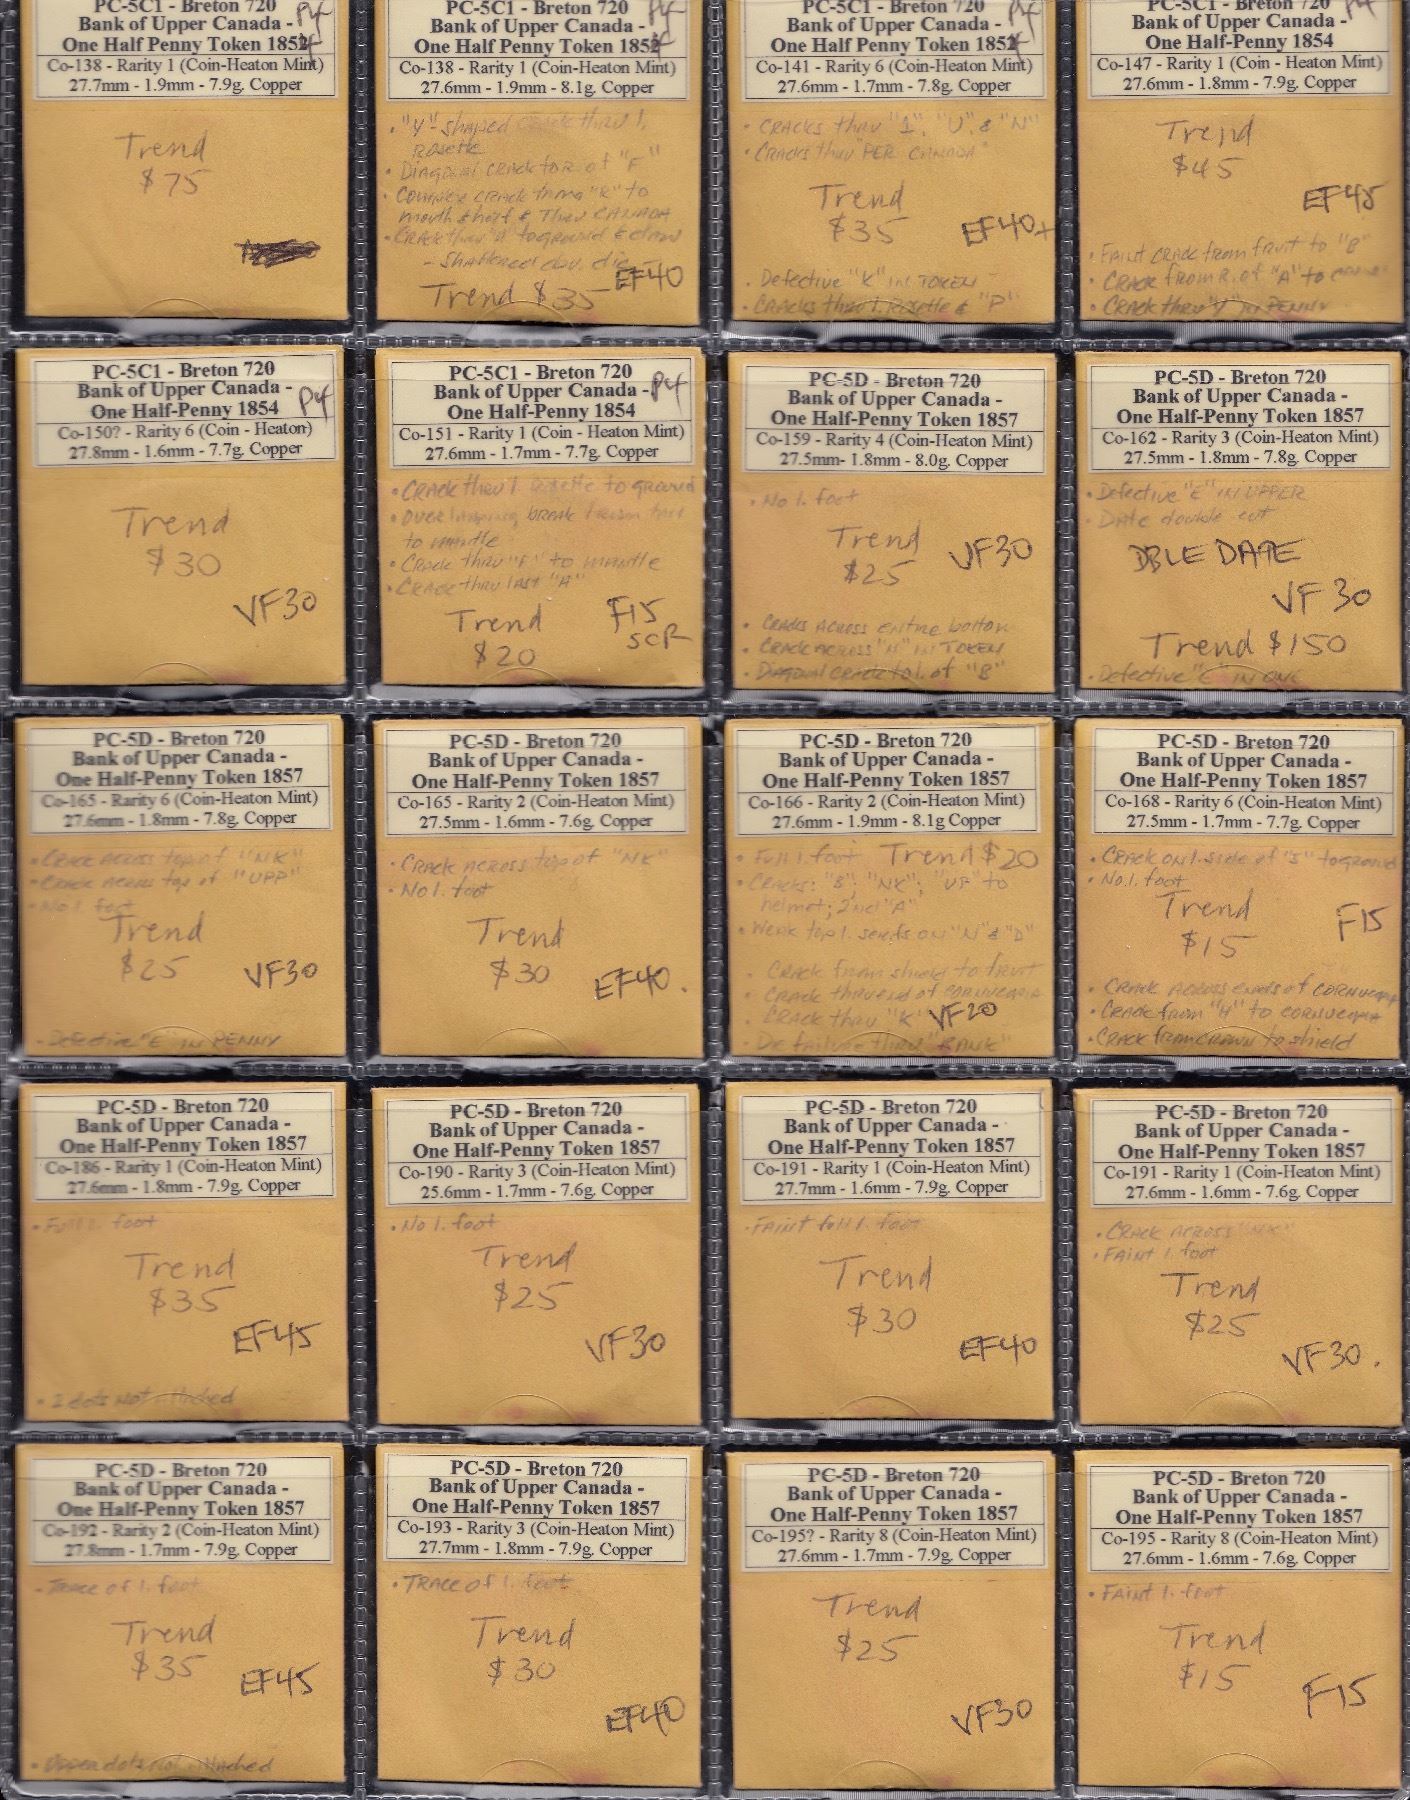 PC-5C1 - Breton 720
Bank of Upper Canada -
One Half Penny Token 1852
Co-138 - Rarity 1 (Coin-Heaton Mint)
27.7mm - 1.9mm - 7.9g. Copper
Trend
$75
PC-5C1 - Breton 720
Bank of Upper Canada -
One Half Penny Token 1852
Co-138 - Rarity 1 (Coin-Heaton Mint)
27.6mm - 1.9mm - 8.1g. Copper
• "Y"-shaped crack thru l.
rosette
• Diagonal crack to R. of "F"
mouth & thru CANADA
• Crack thru "A" to ground
EF40
Trend $35
PC-5C1 - Breton 720
Bank of Upper Canada -
One Half Penny Token 1852
Co-141 - Rarity 6 (Coin-Heaton Mint)
27.6mm - 1.7mm - 7.8g. Copper
• Cracks thru "1", "U", & "N"
• Cracks thru "PER CANADA"
Trend
$35
EF40+
• Defective "K" in TOKEN
• Cracks thru l. Rosette & "P"
PC-5C1 - Breton 720
Bank of Upper Canada -
One Half Penny 1854
Co-147 - Rarity 1 (Coin - Heaton Mint)
27.6mm - 1.8mm - 7.9g. Copper
Trend
$45
EF45
• Faint crack from fruit to "B"
• Crack from R. of "A" to
• Crack thru "Y" in PENNY
PC-5C1 - Breton 720
Bank of Upper Canada -
One Half-Penny 1854
P4
Co-150? - Rarity 6 (Coin - Heaton)
27.8mm - 1.6mm - 7.7g. Copper
Trend
$30
VF30
PC-5C1 - Breton 720
Bank of Upper Canada -
P4
One Half-Penny 1854
Co-151 - Rarity 1 (Coin - Heaton Mint)
27.6mm - 1.7mm - 7.7g. Copper
• Crack thru l. rosette to ground
• Overlapping break from
to mantle
• Crack thru "F" to mantle
• Crack thru last "A"
Trend
$20
F15
SCR
PC-5D - Breton 720
Bank of Upper Canada -
One Half-Penny Token 1857
Co-159 - Rarity 4 (Coin-Heaton Mint)
27.5mm- 1.8mm - 8.0g. Copper
• No l. foot
Trend
$25
VF30
• Cracks across entire bottom
• Crack across "N" in TOKEN
• Diagonal crack to l. of "B"
PC-5D - Breton 720
Bank of Upper Canada -
One Half-Penny Token 1857
Co-162 - Rarity 3 (Coin-Heaton Mint)
27.5mm - 1.8mm - 7.8g. Copper
• Defective "E" in UPPER
• Date double cut
DBLE DATE
VF 30
Trend $150
• Defective "E" in ONE
PC-5D - Breton 720
Bank of Upper Canada -
One Half-Penny Token 1857
Co-165 - Rarity 6 (Coin-Heaton Mint)
27.6mm - 1.8mm - 7.8g. Copper
• Crack across top of "NK"
• Crack across top of "UPP"
• No l. foot
Trend
$25
VF30
• Defective "E" in PENNY
PC-5D - Breton 720
Bank of Upper Canada -
One Half-Penny Token 1857
Co-165 - Rarity 2 (Coin-Heaton Mint)
27.5mm - 1.6mm - 7.6g. Copper
• Crack across top of "NK"
• No l. foot
Trend
$30
EF40.
PC-5D - Breton 720
Bank of Upper Canada -
One Half-Penny Token 1857
Co-166 - Rarity 2 (Coin-Heaton Mint)
27.6mm - 1.9mm - 8.1g Copper
• Full l. foot
Trend $20
• Cracks: "B"; "NK"; "UP" to
helmet; 2nd "A"
• Weak top l. serifs on "N" & "D"
• Crack from shield to fruit
• Crack thru end of cornucopia
• Crack thru "K"
VF20
• Die failure thru "BANK"
PC-5D - Breton 720
Bank of Upper Canada -
One Half-Penny Token 1857
Co-168 - Rarity 6 (Coin-Heaton Mint)
27.5mm - 1.7mm - 7.7g. Copper
• Crack on l. side of "5" to ground
• No l. foot
Trend
$15
F15
• Crack across ends of cornucopia
• Crack from "H" to cornucopia
• Crack from crown to shield
PC-5D - Breton 720
Bank of Upper Canada -
One Half-Penny Token 1857
Co-186 - Rarity 1 (Coin-Heaton Mint)
27.6mm - 1.8mm - 7.9g. Copper
• Full l. foot
Trend
$35
EF45
• 2 dots not attached
PC-5D - Breton 720
Bank of Upper Canada -
One Half-Penny Token 1857
Co-190 - Rarity 3 (Coin-Heaton Mint)
25.6mm - 1.7mm - 7.6g. Copper
• No l. foot
Trend
$25
VF30
PC-5D - Breton 720
Bank of Upper Canada -
One Half-Penny Token 1857
Co-191 - Rarity 1 (Coin-Heaton Mint)
27.7mm - 1.6mm - 7.9g. Copper
• Faint full l. foot
Trend
$30
EF40
PC-5D - Breton 720
Bank of Upper Canada -
One Half-Penny Token 1857
Co-191 - Rarity 1 (Coin-Heaton Mint)
27.6mm - 1.6mm - 7.6g. Copper
• Crack across "NK"
• Faint l. foot
Trend
$25
VF30.
PC-5D - Breton 720
Bank of Upper Canada -
One Half-Penny Token 1857
Co-192 - Rarity 2 (Coin-Heaton Mint)
27.8mm - 1.7mm - 7.9g. Copper
• Trace of l. foot
Trend
$35
EF45
• Upper dots not attached
PC-5D - Breton 720
Bank of Upper Canada -
One Half-Penny Token 1857
Co-193 - Rarity 3 (Coin-Heaton Mint)
27.7mm - 1.8mm - 7.9g. Copper
• Trace of l. foot
Trend
$30
EF40
PC-5D - Breton 720
Bank of Upper Canada -
One Half-Penny Token 1857
Co-195? - Rarity 8 (Coin-Heaton Mint)
27.6mm - 1.7mm - 7.9g. Copper
Trend
$25
VF30
PC-5D - Breton 720
Bank of Upper Canada -
One Half-Penny Token 1857
Co-195 - Rarity 8 (Coin-Heaton Mint)
27.6mm - 1.6mm - 7.6g. Copper
• Faint l. foot
Trend
$15
F15